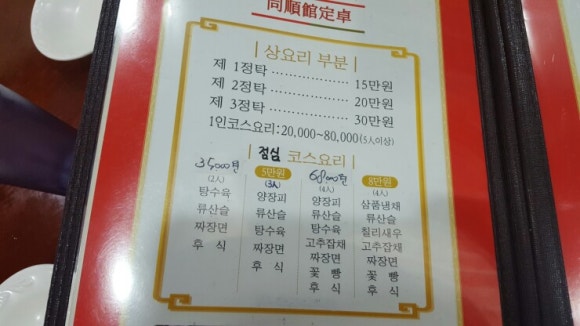 同順館定卓
상요리 부분
제 1정탁 ................ 15만원
제 2정탁 ................ 20만원
제 3정탁 ................ 30만원
1인코스요리:20,000~80,000(5人이상)
점심 코스요리
35000원
(2人)
탕수육
류산슬
짜장면
후 식
5만원
(3人)
양장피
류산슬
탕수육
짜장면
후 식
68000원
(4人)
양장피
류산슬
탕수육
고추잡채
짜장면
꽃 빵
후 식
8만원
(4人)
삼품냉채
류산슬
칠리새우
고추잡채
짜장면
꽃 빵
후 식